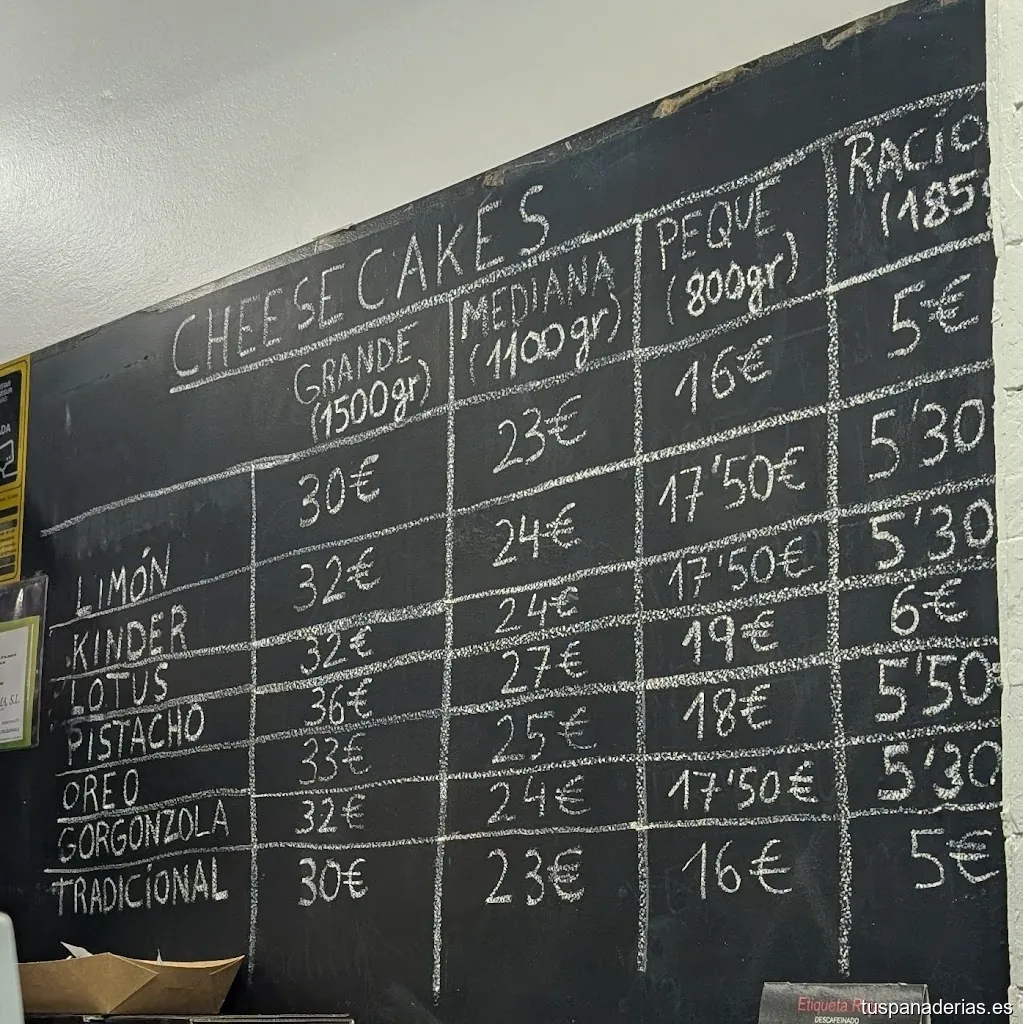 CHEESECAKES
GRANDE (1500gr) MEDIANA (1100gr) PEQUE (800gr) RACIO (185g
LIMÓN 30€ 23€ 16€ 5€
KINDER 32€ 24€ 17'50€ 5'30
LOTUS 32€ 24€ 17'50€ 5'30
PISTACHO 36€ 27€ 19€ 6€
OREO 33€ 25€ 18€ 5'50
GORGONZOLA 32€ 24€ 17'50€ 5'30
TRADICIONAL 30€ 23€ 16€ 5€
Etiqueta
DESCAFEINADO
tuspanaderias.es